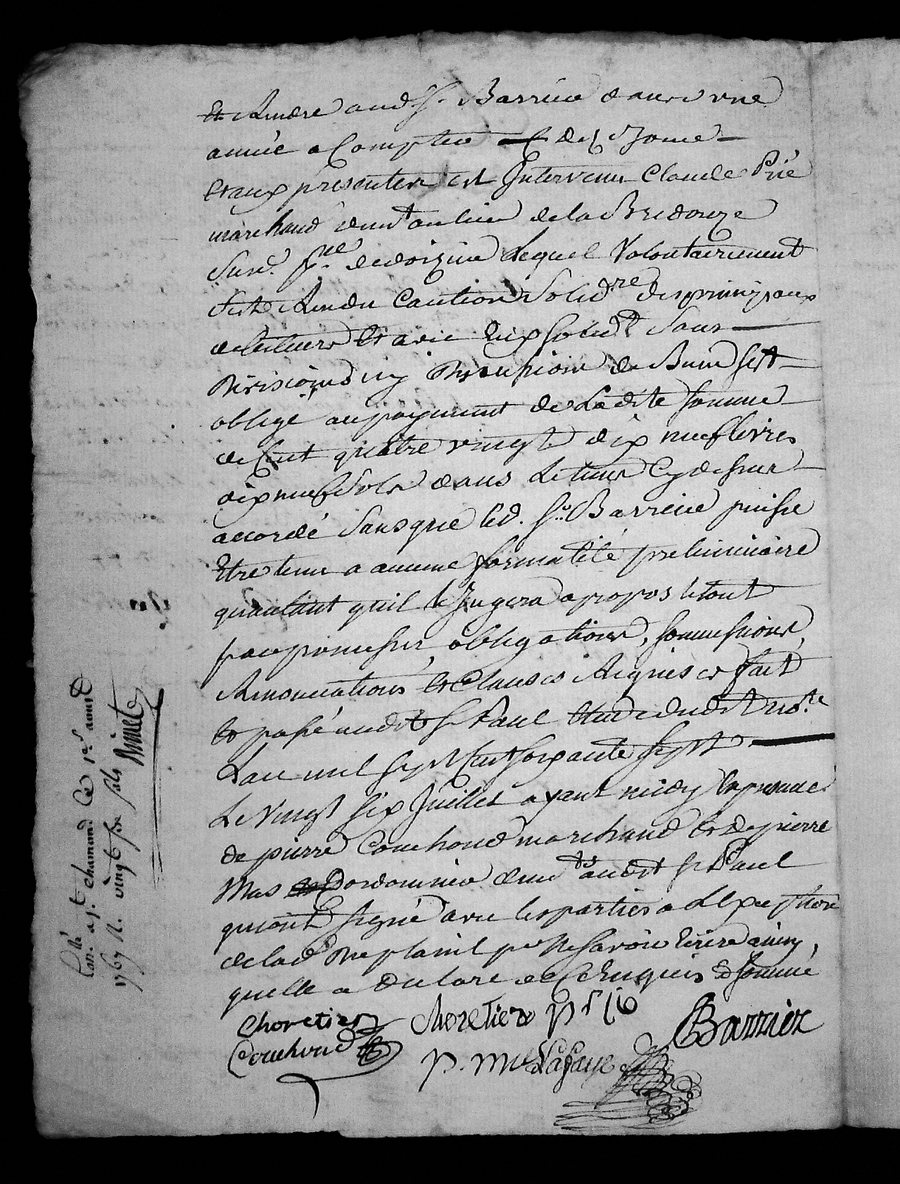 Et Rendre aud. Sr. Barrieu dans une
année a Compter de Ce Jour
Et aux presentes est Intervenu Claude Prié
marchand demt au lieu de la Bridonze
Lequel Volontairement
sest Rendu Caution Solidre des principaux
debiteurs Et avec Eux solidt Sans
Division ny Discution de Bien sest
obligé au payement de Ladite Somme
de Cent quatre vingt dix neuf livres
dix neuf sols dans Le tems Cy dessus
accordé Sans que led. Sr. Barrieu puisse
Etre tenu a aucune formalité preliminaire
quautant quil le Jugera apropos Le tout
par promesses, obligations, soumissions,
Renonciations Et Clauses Requises fait
Et passé audt St Paul Etude dudit notre
Lan mil sept Cent soixante sept
Le Vingt six Juillet avant midy En presence
de pierre Couhond marchand Et de pierre
Mas Cordonnier demts audit St Paul
qui ont signé avec les parties a Lexeption
de lad. pr ne savoir Ecrire ainsy
quelle a Declaré de Ce Enquise Et sommé
Choretier Choretier Barrieu
Couhond p. mas Lafaye
Conlé a St chamond Ce 1er aoust
1767 R. vingt six sols